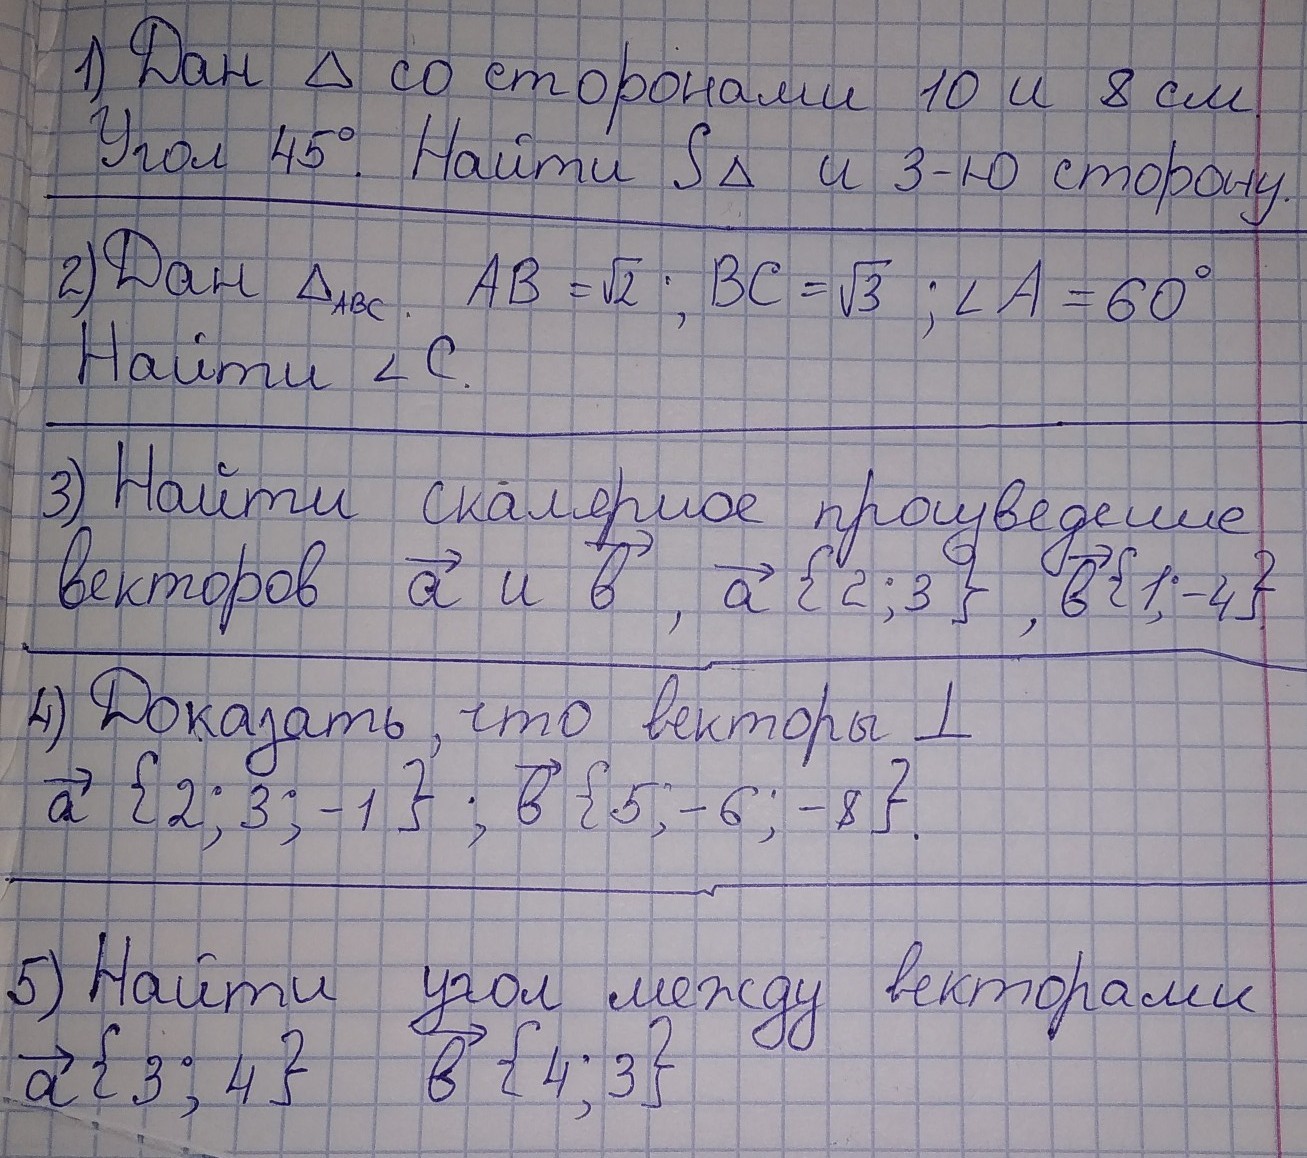 1) Дан △ со сторонами 10 и 8 см
Угол 45°. Найти S△ и 3-ю сторону.
2) Дан △ABC. AB = √2; BC = √3; ∠A = 60°
Найти ∠C.
3) Найти скалярное произведение
векторов a⃗ и в⃗, a⃗ {2; 3}, в⃗ {1; -4}
4) Доказать, что векторы ⊥
a⃗ {2; 3; -1}; в⃗ {5; -6; -8}.
5) Найти угол между векторами
a⃗ {3; 4} в⃗ {4; 3}